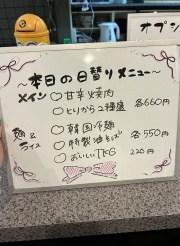 オプシ
～本日の日替りメニュー～
メイン ○甘辛焼肉
○とりから2種盛 各660円
麺&ライス ○韓国冷麺
○特製油そば 各550円
○おいしいTKG 220円